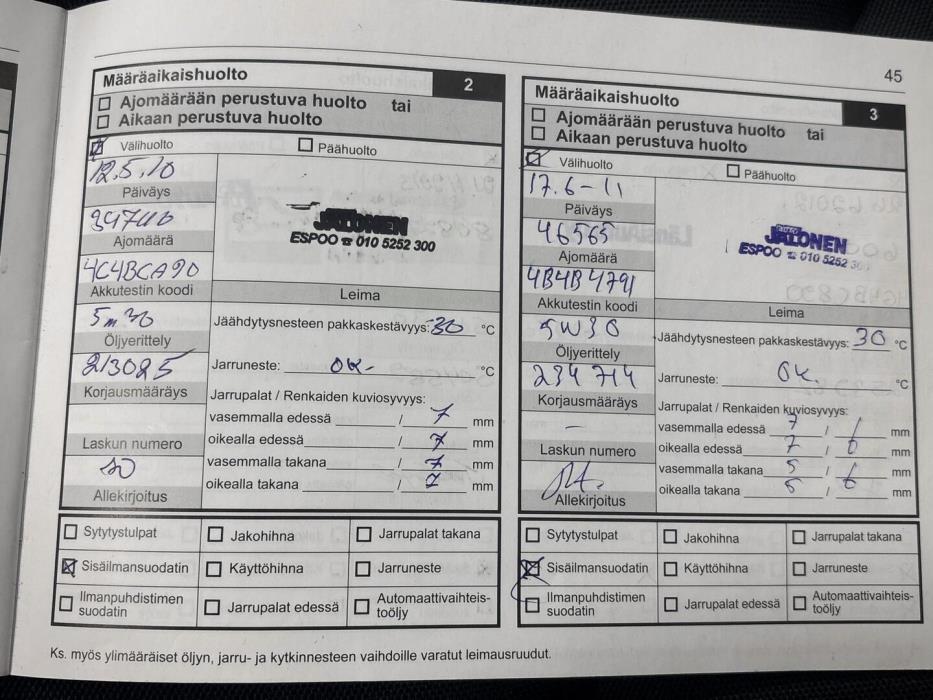 45
Määräaikaishuolto
2
Ajomäärään perustuva huolto tai
Aikaan perustuva huolto
Välihuolto
Päähuolto
12.5.10
Päiväys
Ajomäärä
JALONEN
ESPOO ☎ 010 5252 300
4C4BCA90
Akkutestin koodi
Leima
Öljyerittely
Jäähdytysnesteen pakkaskestävyys: -30 °C
213025
Korjausmääräys
Jarruneste: OK- °C
Jarrupalat / Renkaiden kuviosyvyys:
vasemmalla edessä / 7 mm
oikealla edessä / 7 mm
vasemmalla takana / 7 mm
oikealla takana / 7 mm
Laskun numero
Allekirjoitus
Sytytystulpat
Jakohihna
Jarrupalat takana
Sisäilmansuodatin
Käyttöhihna
Jarruneste
Ilmanpuhdistimen
suodatin
Jarrupalat edessä
Automaattivaihteis-
toöljy
Määräaikaishuolto
3
Ajomäärään perustuva huolto tai
Aikaan perustuva huolto
Välihuolto
Päähuolto
17.6-11
Päiväys
46565
Ajomäärä
JALONEN
ESPOO ☎ 010 5252 300
4B4B4791
Akkutestin koodi
Leima
5W30
Öljyerittely
Jäähdytysnesteen pakkaskestävyys: 30 °C
234714
Korjausmääräys
Jarruneste: OK. °C
Jarrupalat / Renkaiden kuviosyvyys:
vasemmalla edessä 7 / mm
oikealla edessä 7 / 6 mm
vasemmalla takana 5 / 6 mm
oikealla takana 5 / 6 mm
–
Laskun numero
Allekirjoitus
Sytytystulpat
Jakohihna
Jarrupalat takana
Sisäilmansuodatin
Käyttöhihna
Jarruneste
Ilmanpuhdistimen
suodatin
Jarrupalat edessä
Automaattivaihteis-
toöljy
Ks. myös ylimääräiset öljyn, jarru- ja kytkinnesteen vaihdoille varatut leimausruudut.